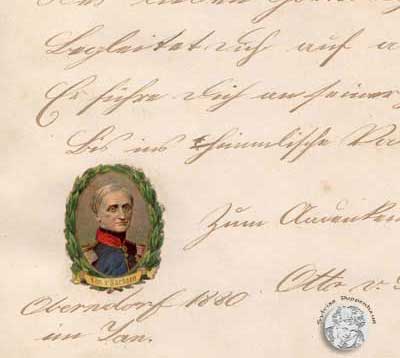 Begleitet Dich auf a
Er führe Dich an seiner
Bis ins himmlische Va
Zum Andenken
Otto v.
Oberndorf 1880
im Jan.